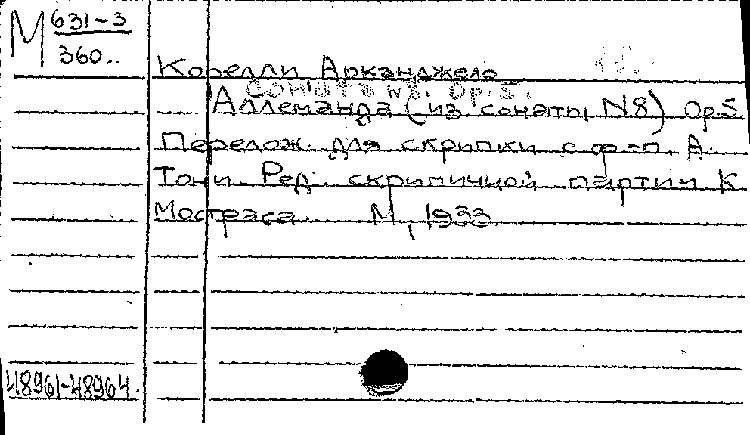 М 631-3
360..
Корелли Арканджело
Соната №8. Ор.5.
Аллеманда (из сонаты N8) Op.5
Перелож. для скрипки с ф-п. А.
Тони Ред. скрипичной партии К
Мостраса М, 1933
48961-48964.